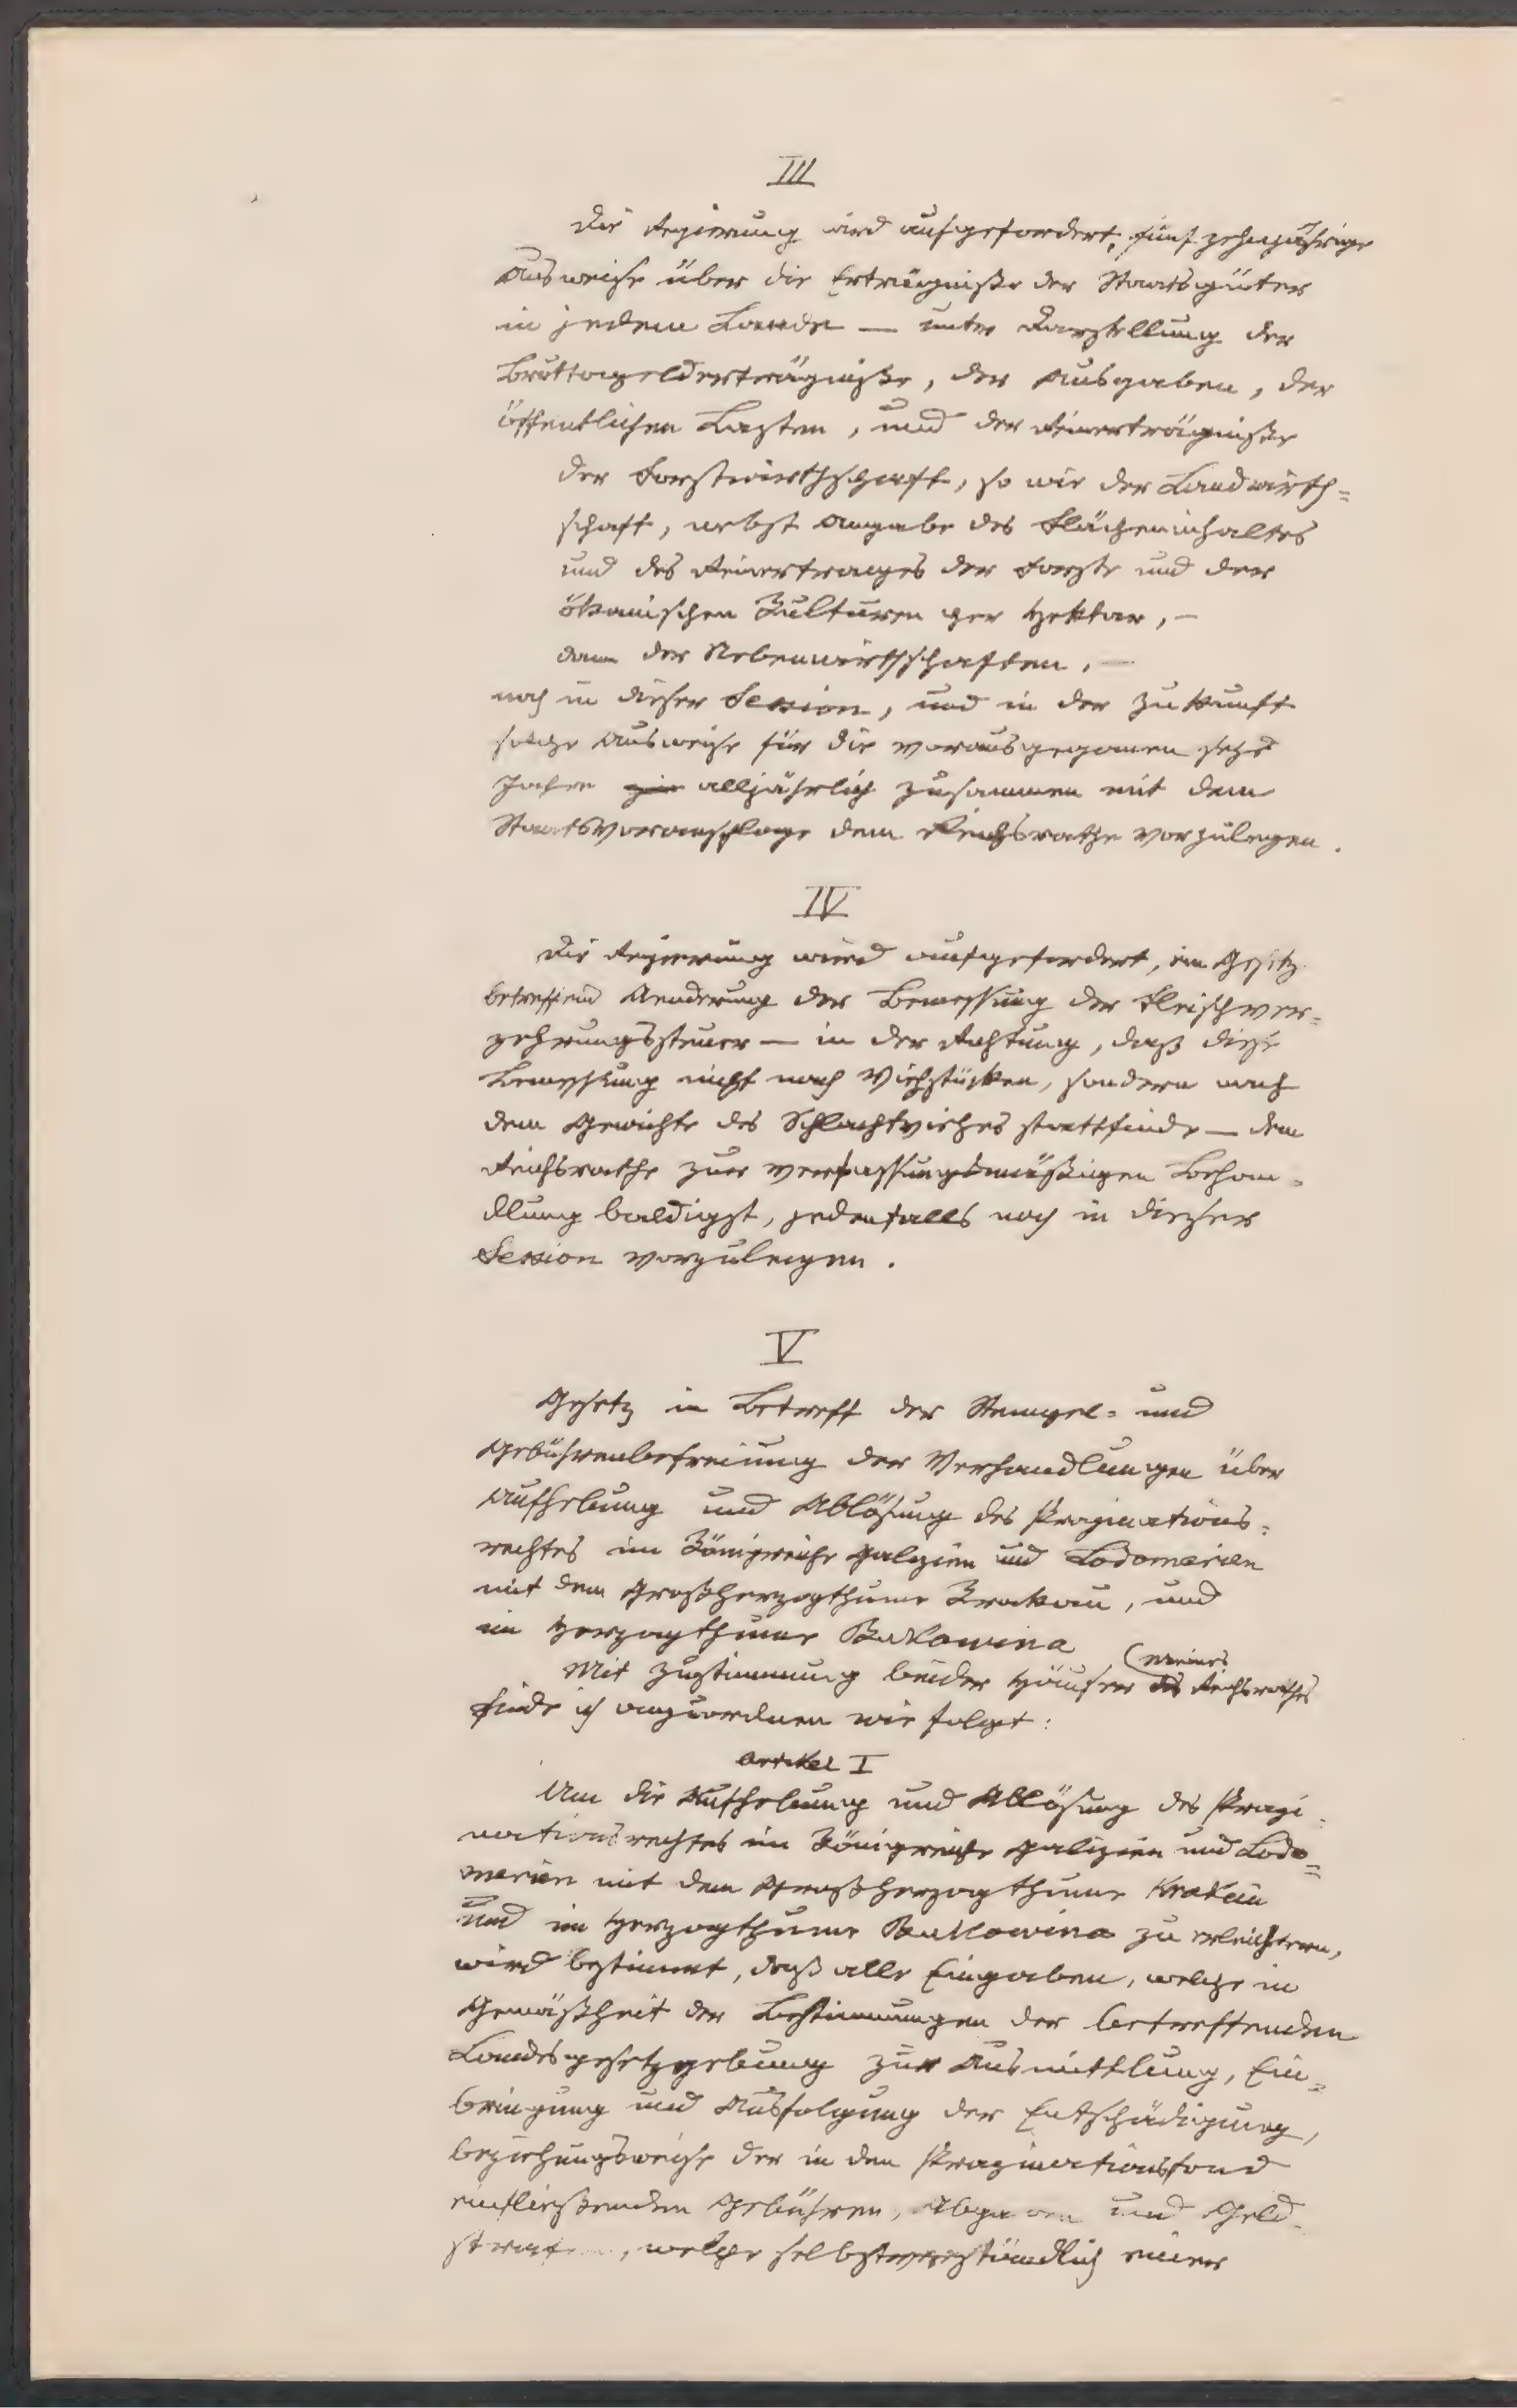 III
Die Regierung wird aufgefordert, fünfzehnjährige
Ausweise über die Erträgnisse der Staatsgüter
in jedem Lande — unter Darstellung der
Bruttogelderträgnisse, der Ausgaben, der
öffentlichen Lasten, und der Reinerträgnisse
der Forstwirthschaft, so wie der Landwirth=
schaft, nebst Angabe des Flächeninhaltes
und des Reinertrages der Forste und der
ökonischen Kulturen per Hektar, —
dann der Nebenwirthschaften, —
noch in dieser Session, und in der Zukunft
solche Ausweise für die vorausgegangenen sechs
Jahre alljährlich zusammen mit dem
Staatsvoranschlage dem Reichsrathe vorzulegen.
IV
Die Regierung wird aufgefordert, ein Gesetz
betreffend Aenderung der Bemessung der Fleischver=
zehrungssteuer — in der Richtung, daß diese
Bemessung nicht nach Viehstücken, sondern nach
dem Gewichte des Schlachtviehes stattfinde — dem
Reichsrathe zur verfassungsmäßigen Behan=
dlung baldigst, jedenfalls noch in dieser
Session vorzulegen.
V
Gesetz in Betreff der Stempel= und
Gebührenbefreiung der Verhandlungen über
Aufhebung und Ablösung des Propinations=
rechtes im Königreiche Galizien und Lodomerien
mit dem Großherzogthume Krakau, und
im Herzogthume Bukowina
Mit Zustimmung beider Häuser meines Reichsrathes
finde ich anzuordnen wie folgt:
Artikel I
Um die Aufhebung und Ablösung des Propi=
nationsrechtes im Königreiche Galizien und Lodo=
merien mit dem Großherzogthume Krakau
und im Herzogthume Bukowina zu erleichtern,
wird bestimmt, daß alle Eingaben, welche in
Gemäßheit der Bestimmungen der betreffenden
Landesgesetzgebung zur Ausmittlung, Ein=
bringung und Ausfolgung der Entschädigung,
beziehungsweise der in den Propinationsfond
einfließenden Gebühren, Abgaben und Geld=
strafen, welche selbstverständlich einer